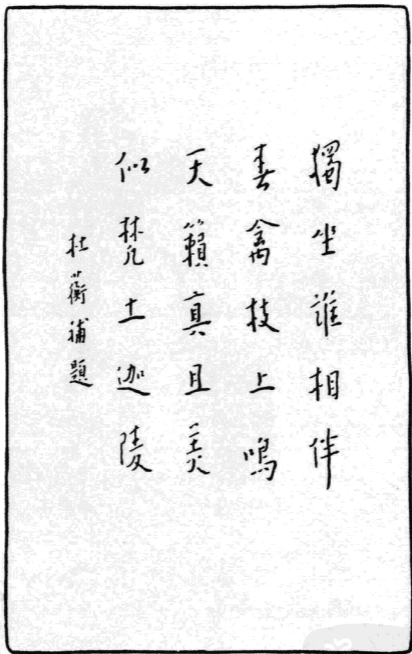 獨坐誰相伴
春禽枝上鳴
天籟真且美
似梵土迦陵
杜蘅補題